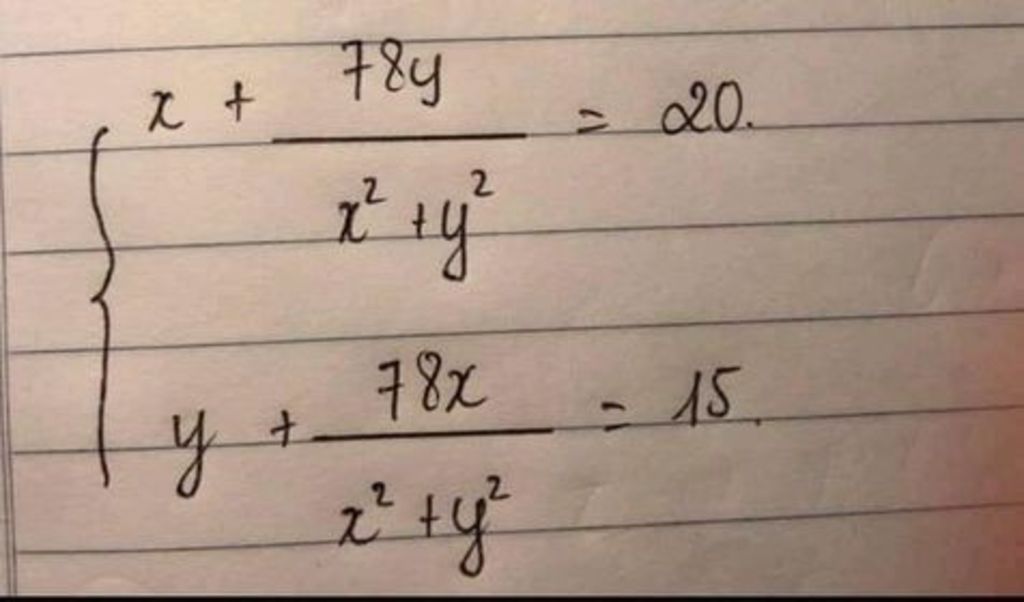 x + 78y / x² + y² = 20.
y + 78x / x² + y² = 15.